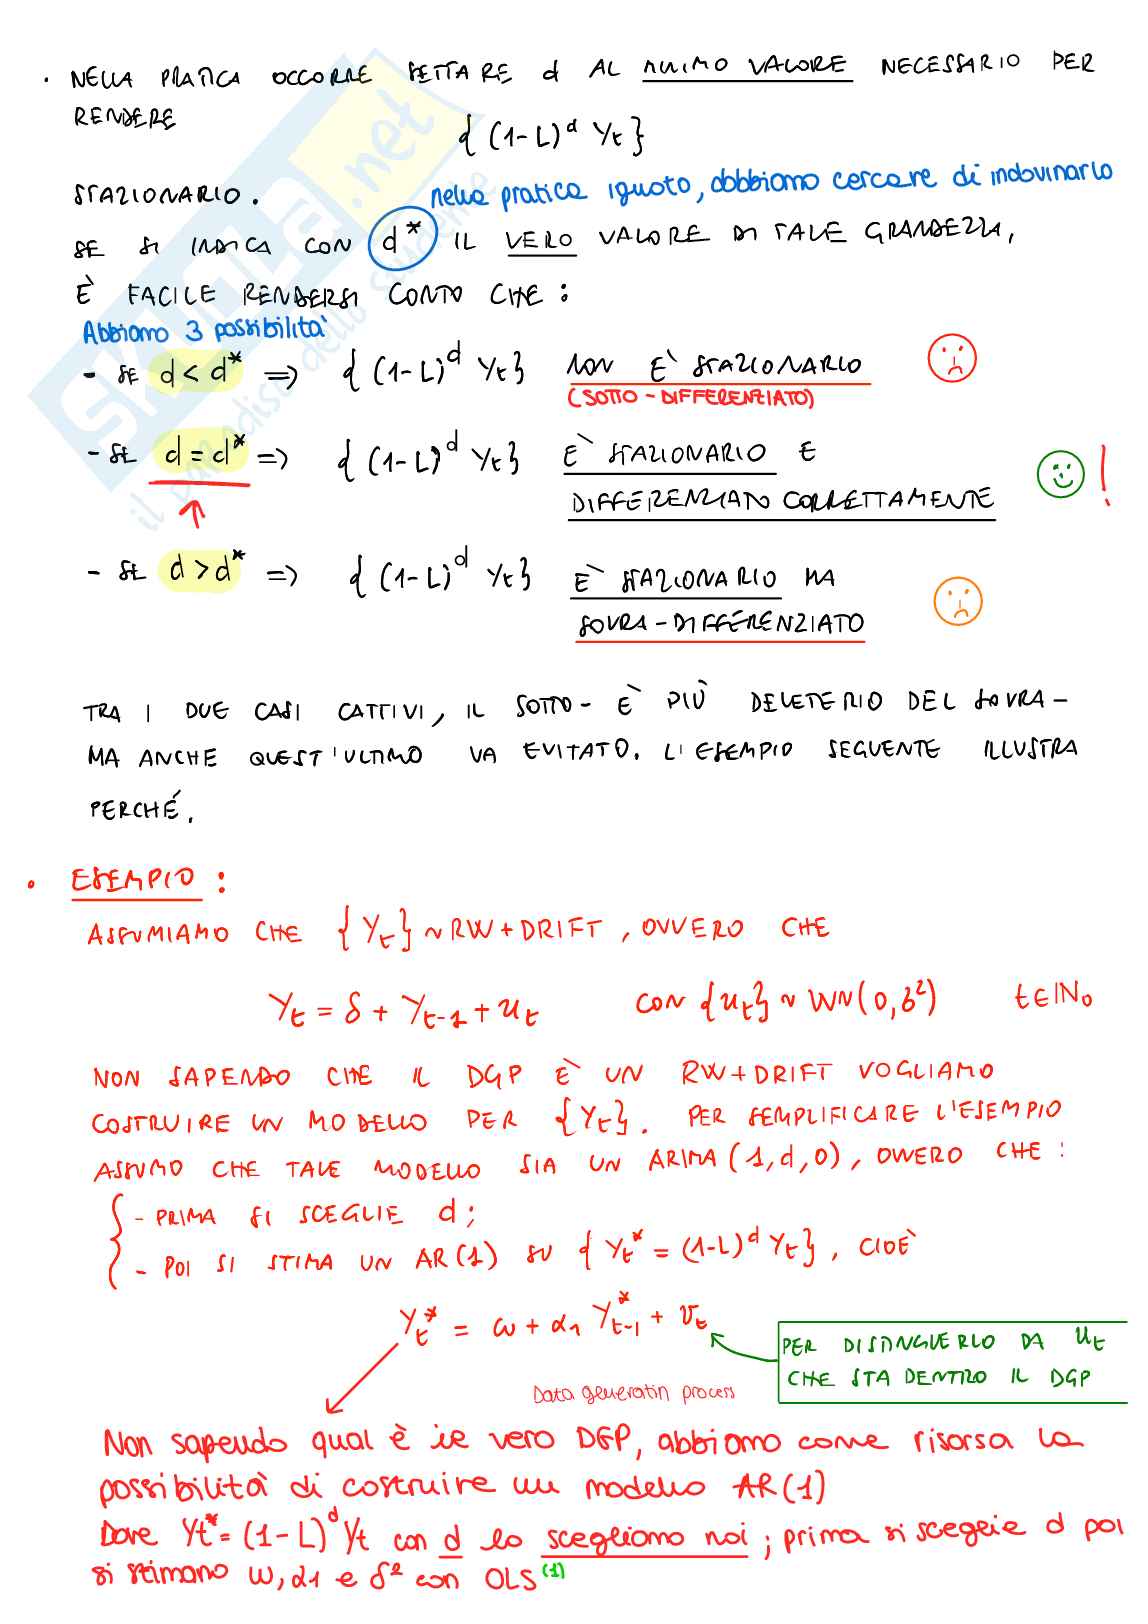 · NELLA PRATICA OCCORRE SETTARE d AL MINIMO VALORE NECESSARIO PER
RENDERE
{ (1-L)^d Yt }
STAZIONARIO.
nella pratica ignoto, dobbiamo cercare di indovinarlo
SE SI INDICA CON d* IL VERO VALORE DI TALE GRANDEZZA,
È FACILE RENDERSI CONTO CHE :
Abbiamo 3 possibilità
- SE d < d* => { (1-L)^d Yt } NON È STAZIONARIO
(SOTTO-DIFFERENZIATO)
- SE d = d* => { (1-L)^d Yt } È STAZIONARIO E
DIFFERENZIATO CORRETTAMENTE
!
- SE d > d* => { (1-L)^d Yt } È STAZIONARIO MA
SOVRA-DIFFERENZIATO
TRA I DUE CASI CATTIVI, IL SOTTO- È PIÙ DELETERIO DEL SOVRA-
MA ANCHE QUEST'ULTIMO VA EVITATO. L'ESEMPIO SEGUENTE ILLUSTRA
PERCHÉ.
· ESEMPIO :
ASSUMIAMO CHE { Yt } ~ RW+DRIFT , OVVERO CHE
Yt = δ + Yt-1 + ut CON {ut} ~ WN(0,σ²) t∈IN0
NON SAPENDO CHE IL DGP È UN RW+DRIFT VOGLIAMO
COSTRUIRE UN MODELLO PER {Yt}. PER SEMPLIFICARE L'ESEMPIO
ASSUMO CHE TALE MODELLO SIA UN ARIMA(1,d,0), OVVERO CHE :
{ - PRIMA SI SCEGLIE d;
- POI SI STIMA UN AR(1) SU { Yt* = (1-L)^d Yt }, CIOÈ
Yt* = ω + α1 Y*t-1 + vt
PER DISTINGUERLO DA ut
CHE STA DENTRO IL DGP
Data generatin process
Non sapendo qual è il vero DGP, abbiamo come risorsa la
possibilità di costruire un modello AR(1)
Dove Yt* = (1-L)^d Yt con d lo scegliamo noi ; prima si sceglie d poi
si stimano ω, α1 e σ² con OLS (1)
SKUOLA.net
il paradiso dello studente